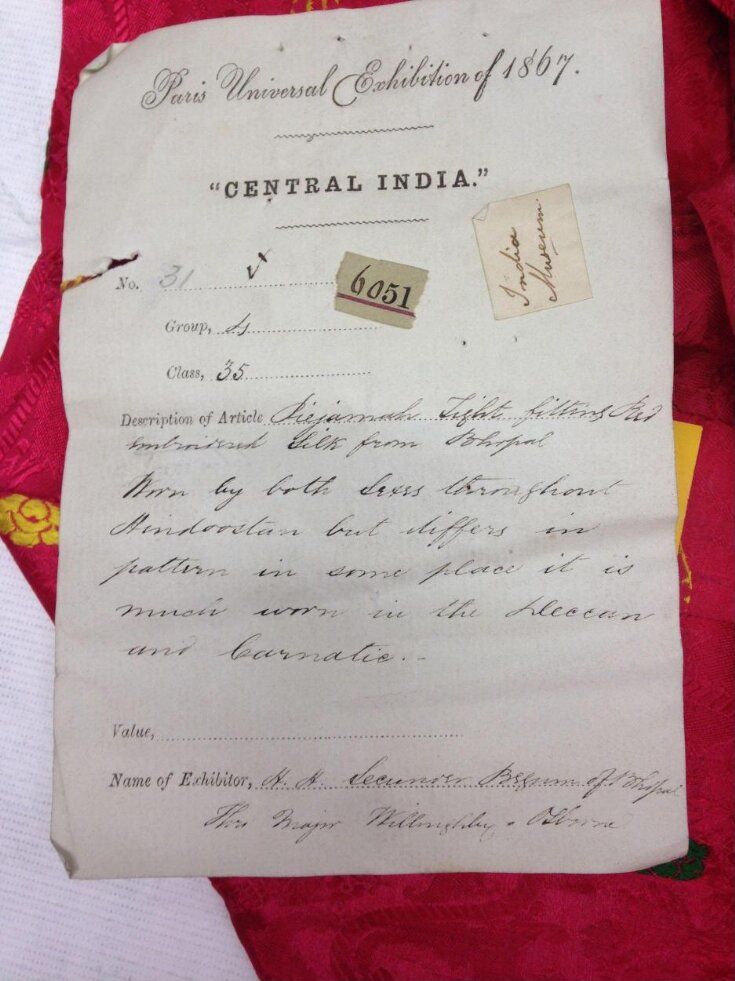 Paris Universal Exhibition of 1867.
"CENTRAL INDIA."
India
Museum.
No. 31
6051
Group, 4
Class, 35
Description of Article Piejamah Tight fitting Red
embroidered Silk from Bhopal
Worn by both sexes throughout
Hindoostan but differs in
pattern in some place it is
much worn in the Deccan
and Carnatic.-
Value,
Name of Exhibitor, H. H. Secunder Begum of Bhopal
Thro Major Willoughby - Osborne